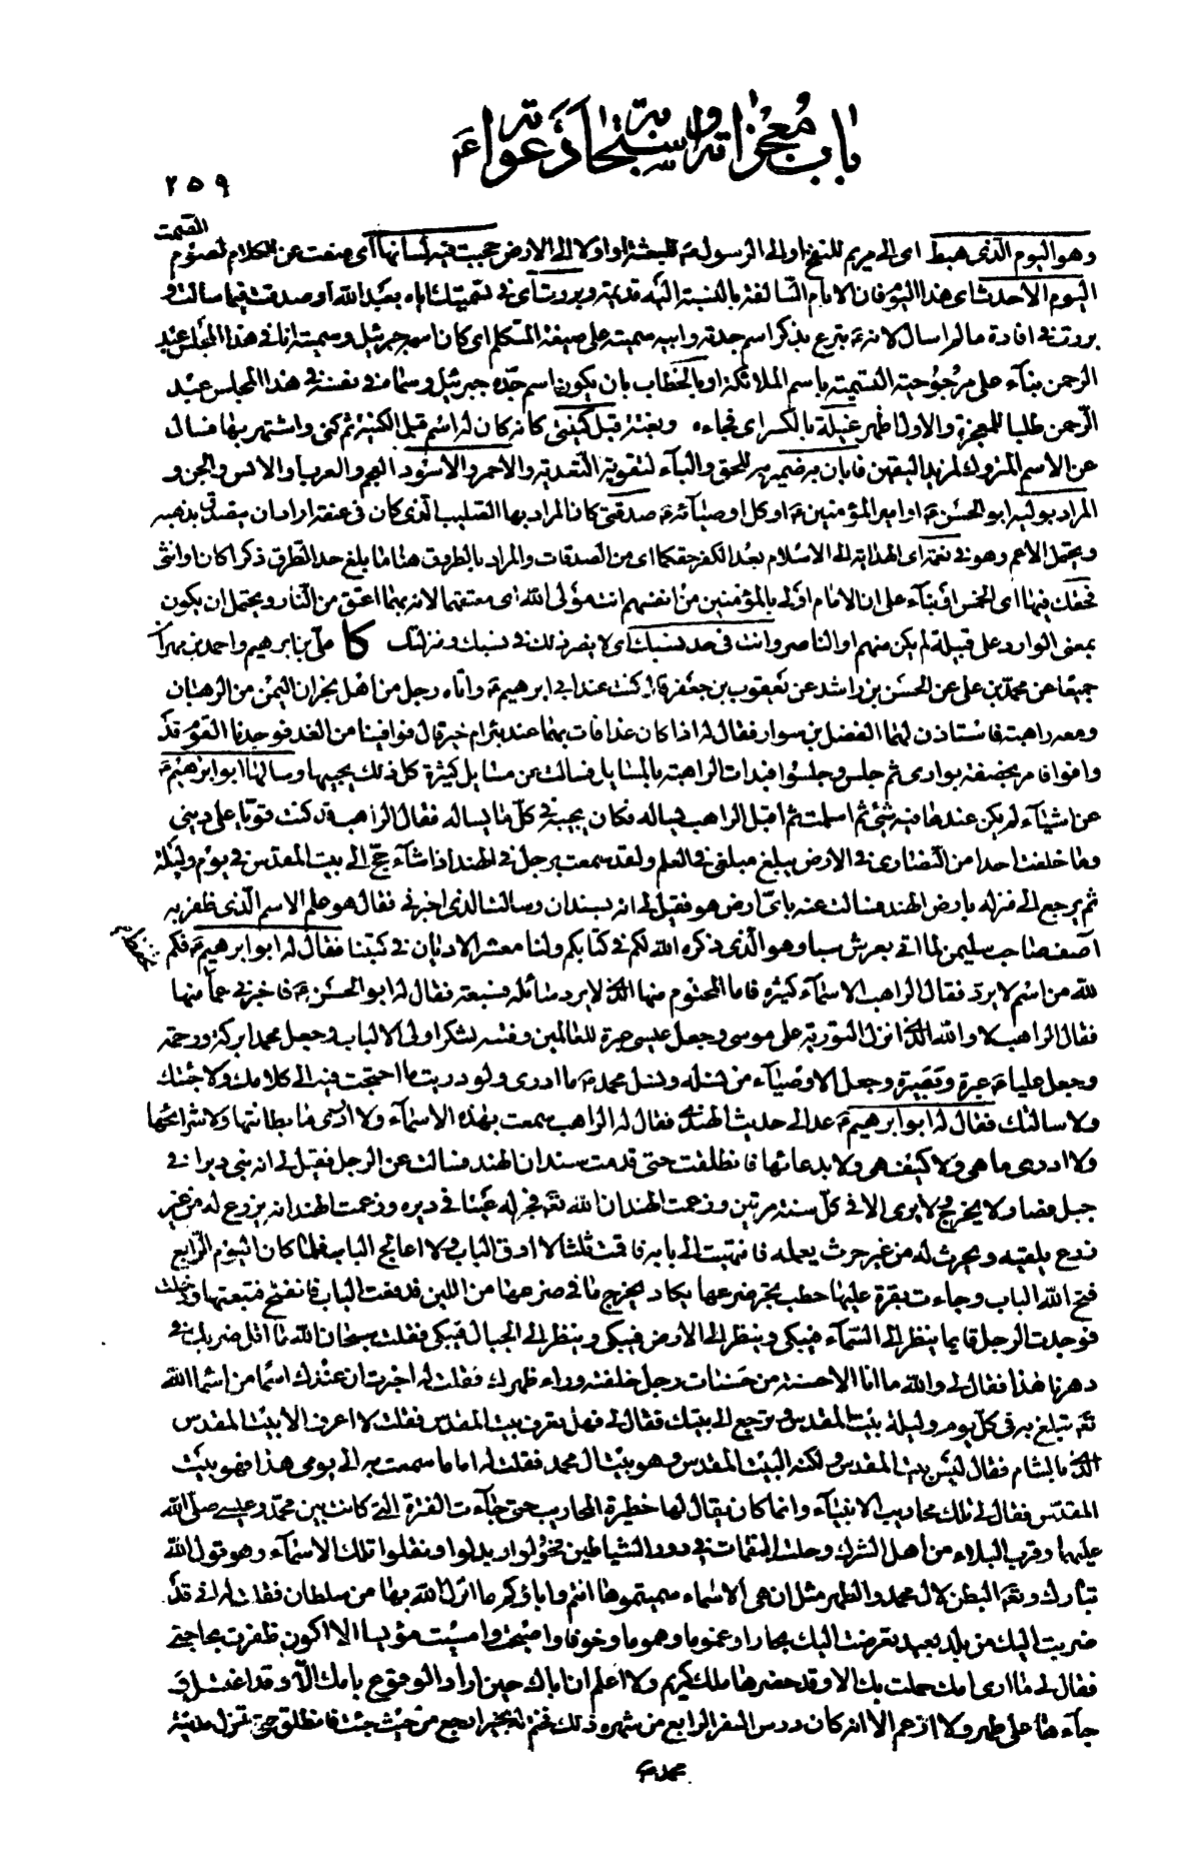 باب معجزاته واستجابة دعواته ع
٢٥٩
وهو اليوم الذي هبط اى الى مريم للنفخ او الى الرسول ص للبعثة او اولا الى الارض حجبت فيه لسانها اى منعت عن الكلام لصوم الصمت
اليوم الاحدث اى هذا اليوم فان الايام السالفة بالنسبة اليه قديمة وبررت اى فى تسميتك اياه بعبد الله او صدقت فيما سالت و
بررت فى افادة ما لم اسال لانه ع تبرع بذكر اسم جدته وابيه سميته على صيغة المتكلم اى كان اسمه جبرئيل وسميته انا فى هذا المجلس عبد
الرحمن بناء على مرجوحية التسمية باسم الملائكة او بالخطاب بان يكون اسم جده جبرئيل وسماه فى نفسه فى هذا المجلس عبد
الرحمن طلبا للمعجزة والاول اظهر غيلة بالكسر اى فجاءه وبغتة قبل كنيتى كانه كان له اسم قبل الكنية ثم كنى واشتهر بها فسال
عن الاسم المتروك لمزيد اليقين فابان به ضمير به للحق والباء لتقوية التعدية والاحمر والاسود العجم والعرب او الانس والجن و
المراد بوليه ابو الحسن ع او امير المؤمنين ع او كل اوصيائه ع صدقتى كان المراد بها الصليب الذى كان فى عنقه اراد ان يتصدق بذهبه
ويحتمل الاعم وهو فى نعمة اى الهداية الى الاسلام بعد الكفر حقكما اى من الصدقات والمراد بالطروق هنا ما بلغ حد الطرق ذكرا كان او انثى
فحقك فيها اى الخمس او بناء على ان الامام اولى بالمؤمنين من انفسهم انت مولى الله اى معتقهما لانه بهما اعتق من النار ويحتمل ان يكون
بمعنى الوارد على قبيلة لم يكن منهم او الناصر وانت فى حد نسبك اى لا يضر ذلك فى نسبك ومنزلتك كا على بن ابرهيم واحمد بن مهران
جميعا عن محمد بن على عن الحسن بن راشد عن يعقوب بن جعفر قال كنت عند ابى ابرهيم ع واتاه رجل من اهل نجران اليمن من الرهبان
ومعه راهبة فاستاذن لهما الفضل بن سوار فقال له اذا كان غدا فات بهما عند بئر ام خير قال فوافينا من الغد فوجدنا القوم قد
وافوا فامر بخصفة بوارى ثم جلس وجلسوا فبدات الراهبة بالمسايل فسالت عن مسايل كثيرة كل ذلك يجيبها وسالها ابو ابرهيم ع
عن اشياء لم يكن عندها فيه شئ ثم اسلمت ثم اقبل الراهب يساله فكان يجيبه فى كل ما يساله فقال الراهب قد كنت قويا على دينى
وما خلفت احدا من النصارى فى الارض يبلغ مبلغى فى العلم ولقد سمعت برجل فى الهند اذا شاء حج الى بيت المقدس فى يوم وليلة
ثم يرجع الى منزله بارض الهند فسالت عنه باى ارض هو فقيل لى انه بسندان وسالت الذى اخبرنى فقال هو علم الاسم الذى ظفر به
اصف صاحب سليمن لما اتى بعرش سبا وهو الذى ذكره الله لكم فى كتابكم ولنا معشر الاديان فى كتبنا فقال له ابو ابرهيم ع فكم
لله من اسم لا يرد فقال الراهب الاسماء كثيرة فاما المحتوم منها الذى لا يرد سائله فسبعة فقال له ابو الحسن ع فاخبرنى عما منها
فقال الراهب لا والله الذى انزل التورية على موسى وجعل عيسى عبرة للعالمين وفتنة لشكر اولى الالباب وجعل محمدا بركة ورحمة
وجعل عليا ع عبرة وبصيرة وجعل الاوصياء من نسله ونسل محمد ع ما ادرى ولو دريت ما احتجت فيه الى كلامك ولا جئتك
ولا سالتك فقال له ابو ابرهيم ع عد الى حديث الهندى فقال له الراهب سمعت بهذه الاسماء ولا ادرى ما بطانتها ولا شرائحها
ولا ادرى ما هى ولا كيف هى ولا بدعائها فانطلقت حتى قدمت سندان الهند فسالت عن الرجل فقيل لى انه بنى ديرا فى
جبل فصار لا يخرج ولا يرى الا فى كل سنة مرتين وزعمت الهند ان الله تعه فجر له عينا فى ديره وزعمت الهند انه يزرع له من غير
زرع يلقيه ويحرث له من غير حرث يعمله فانتهيت الى بابه فاقمت ثلثا لا ادق الباب ولا اعالج الباب فلما كان اليوم الرابع
فتح الله الباب وجاءت بقرة عليها حطب تجر ضرعها يكاد يخرج ما فى ضرعها من اللبن فدفعت الباب فانفتح فتبعتها ودخلت
فوجدت الرجل قايما ينظر الى السماء فيبكى وينظر الى الارض فيبكى وينظر الى الجبال فيبكى فقلت سبحان الله ما اقل ضربك فى
دهرنا هذا فقال لى والله ما انا الا حسنة من حسنات رجل خلفته وراء ظهرك فقلت له اخبرت ان عندك اسما من اسماء الله
تعه تبلغ به فى كل يوم وليلة بيت المقدس وترجع الى بيتك فقال لى فهل تعرف بيت المقدس فقلت لا اعرف الا بيت المقدس
الذى بالشام فقال ليس بيت المقدس ولكنه البيت المقدس وهو بيت ال محمد فقلت له اما ما سمعت به الى يومى هذا فهو بيت
المقدس فقال لى تلك محاريب الانبياء وانما كان يقال لها حظيرة المحاريب حتى جاءت الفترة التى كانت بين محمد وعيسى صلى الله
عليهما وقرب البلاء من اهل الشرك وحلت النقمات فى دور الشياطين فحولوا وبدلوا ونقلوا تلك الاسماء وهو قول الله
تبارك وتعه البطن لال محمد والظهر مثل ان هى الا اسماء سميتموها انتم واباؤكم ما انزل الله بها من سلطان فقلت له انى قد
ضربت اليك من بلد بعيد تعرضت اليك بحارا وغموما وهموما وخوفا واصبحت وامسيت مؤيسا الا اكون ظفرت بحاجتى
فقال لى ما ارى امك حملت بك الا وقد حضرها ملك كريم ولا اعلم ان اباك حين اراد الوقوع بامك الا وقد اغتسل و
جاءها على طهر ولا ازعم الا انه كان درس السفر الرابع من شهره ذلك فختم له بخير ارجع من حيث جئت فانطلق حتى تنزل مدينة
محمد ص